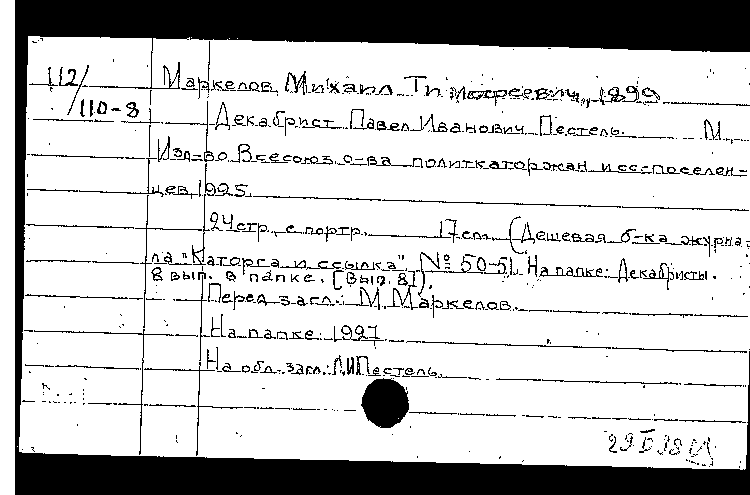 112/
/110-8
Маркелов, Михаил Тимофеевич, 1899
Декабрист Павел Иванович Пестель. М.,
Изд-во Всесоюз. о-ва политкаторжан и сс-поселен-
цев, 1925.
24 стр., с портр. 17 см. (Дешевая б-ка журна-
ла "Каторга и ссылка". № 50-51. На папке: Декабристы.
8 вып. в папке. [Вып. 8]).
Перед загл.: М. Маркелов.
На папке: 1927
На обл. загл.: П.И. Пестель.